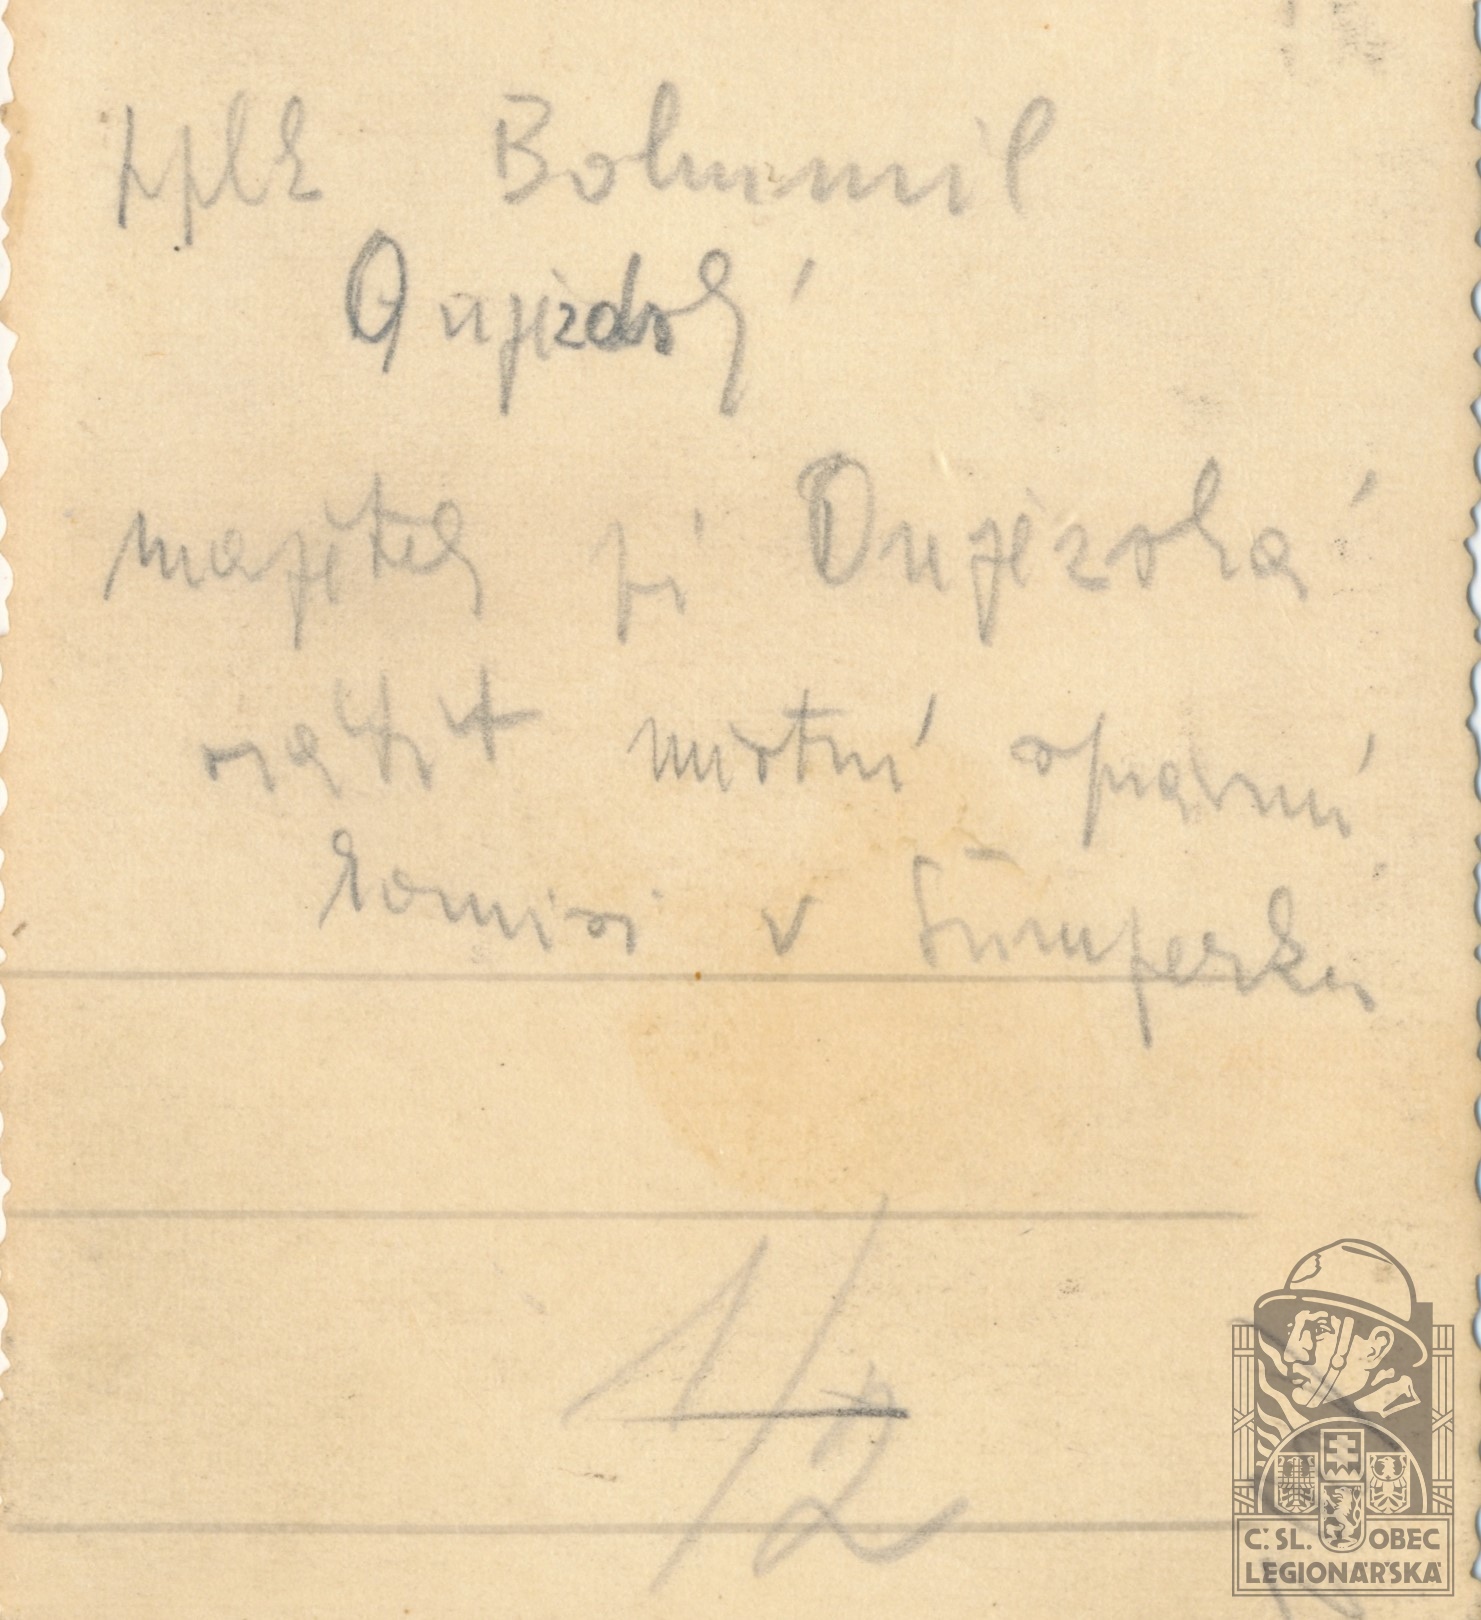 pplk Bohumil
Oujezdský
majetek pí Oujezdská
místní správní
komisi v Šumperku
1/2
Č.SL. OBEC
LEGIONÁŘSKÁ